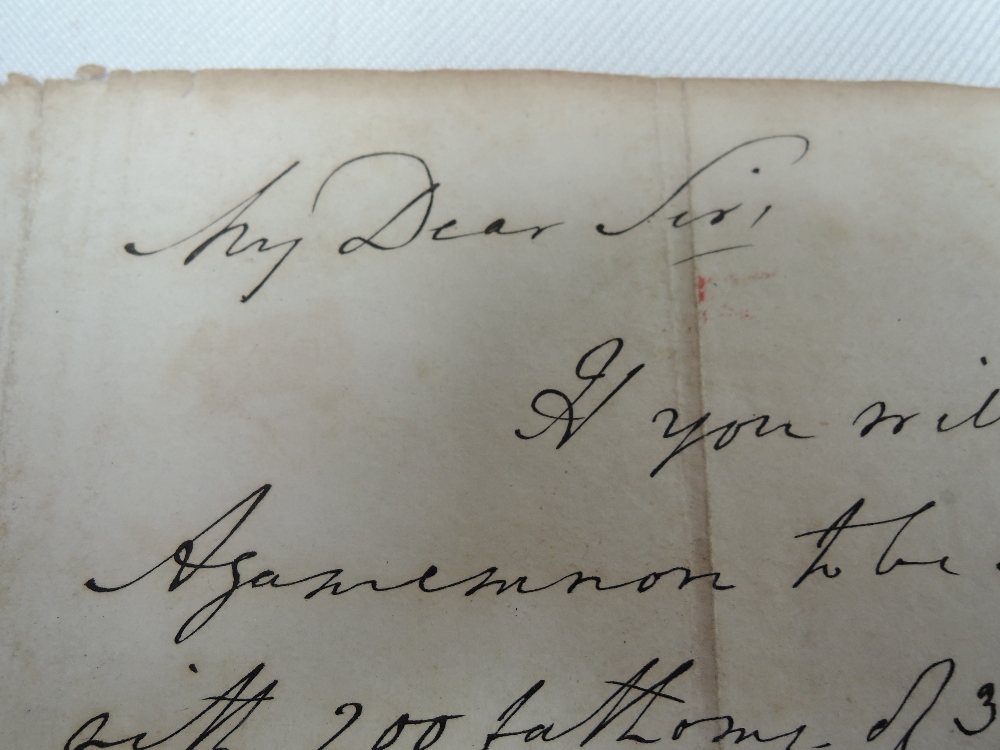 My Dear Sir,
If you wil
Agamemnon to be
with 200 fathoms of 3